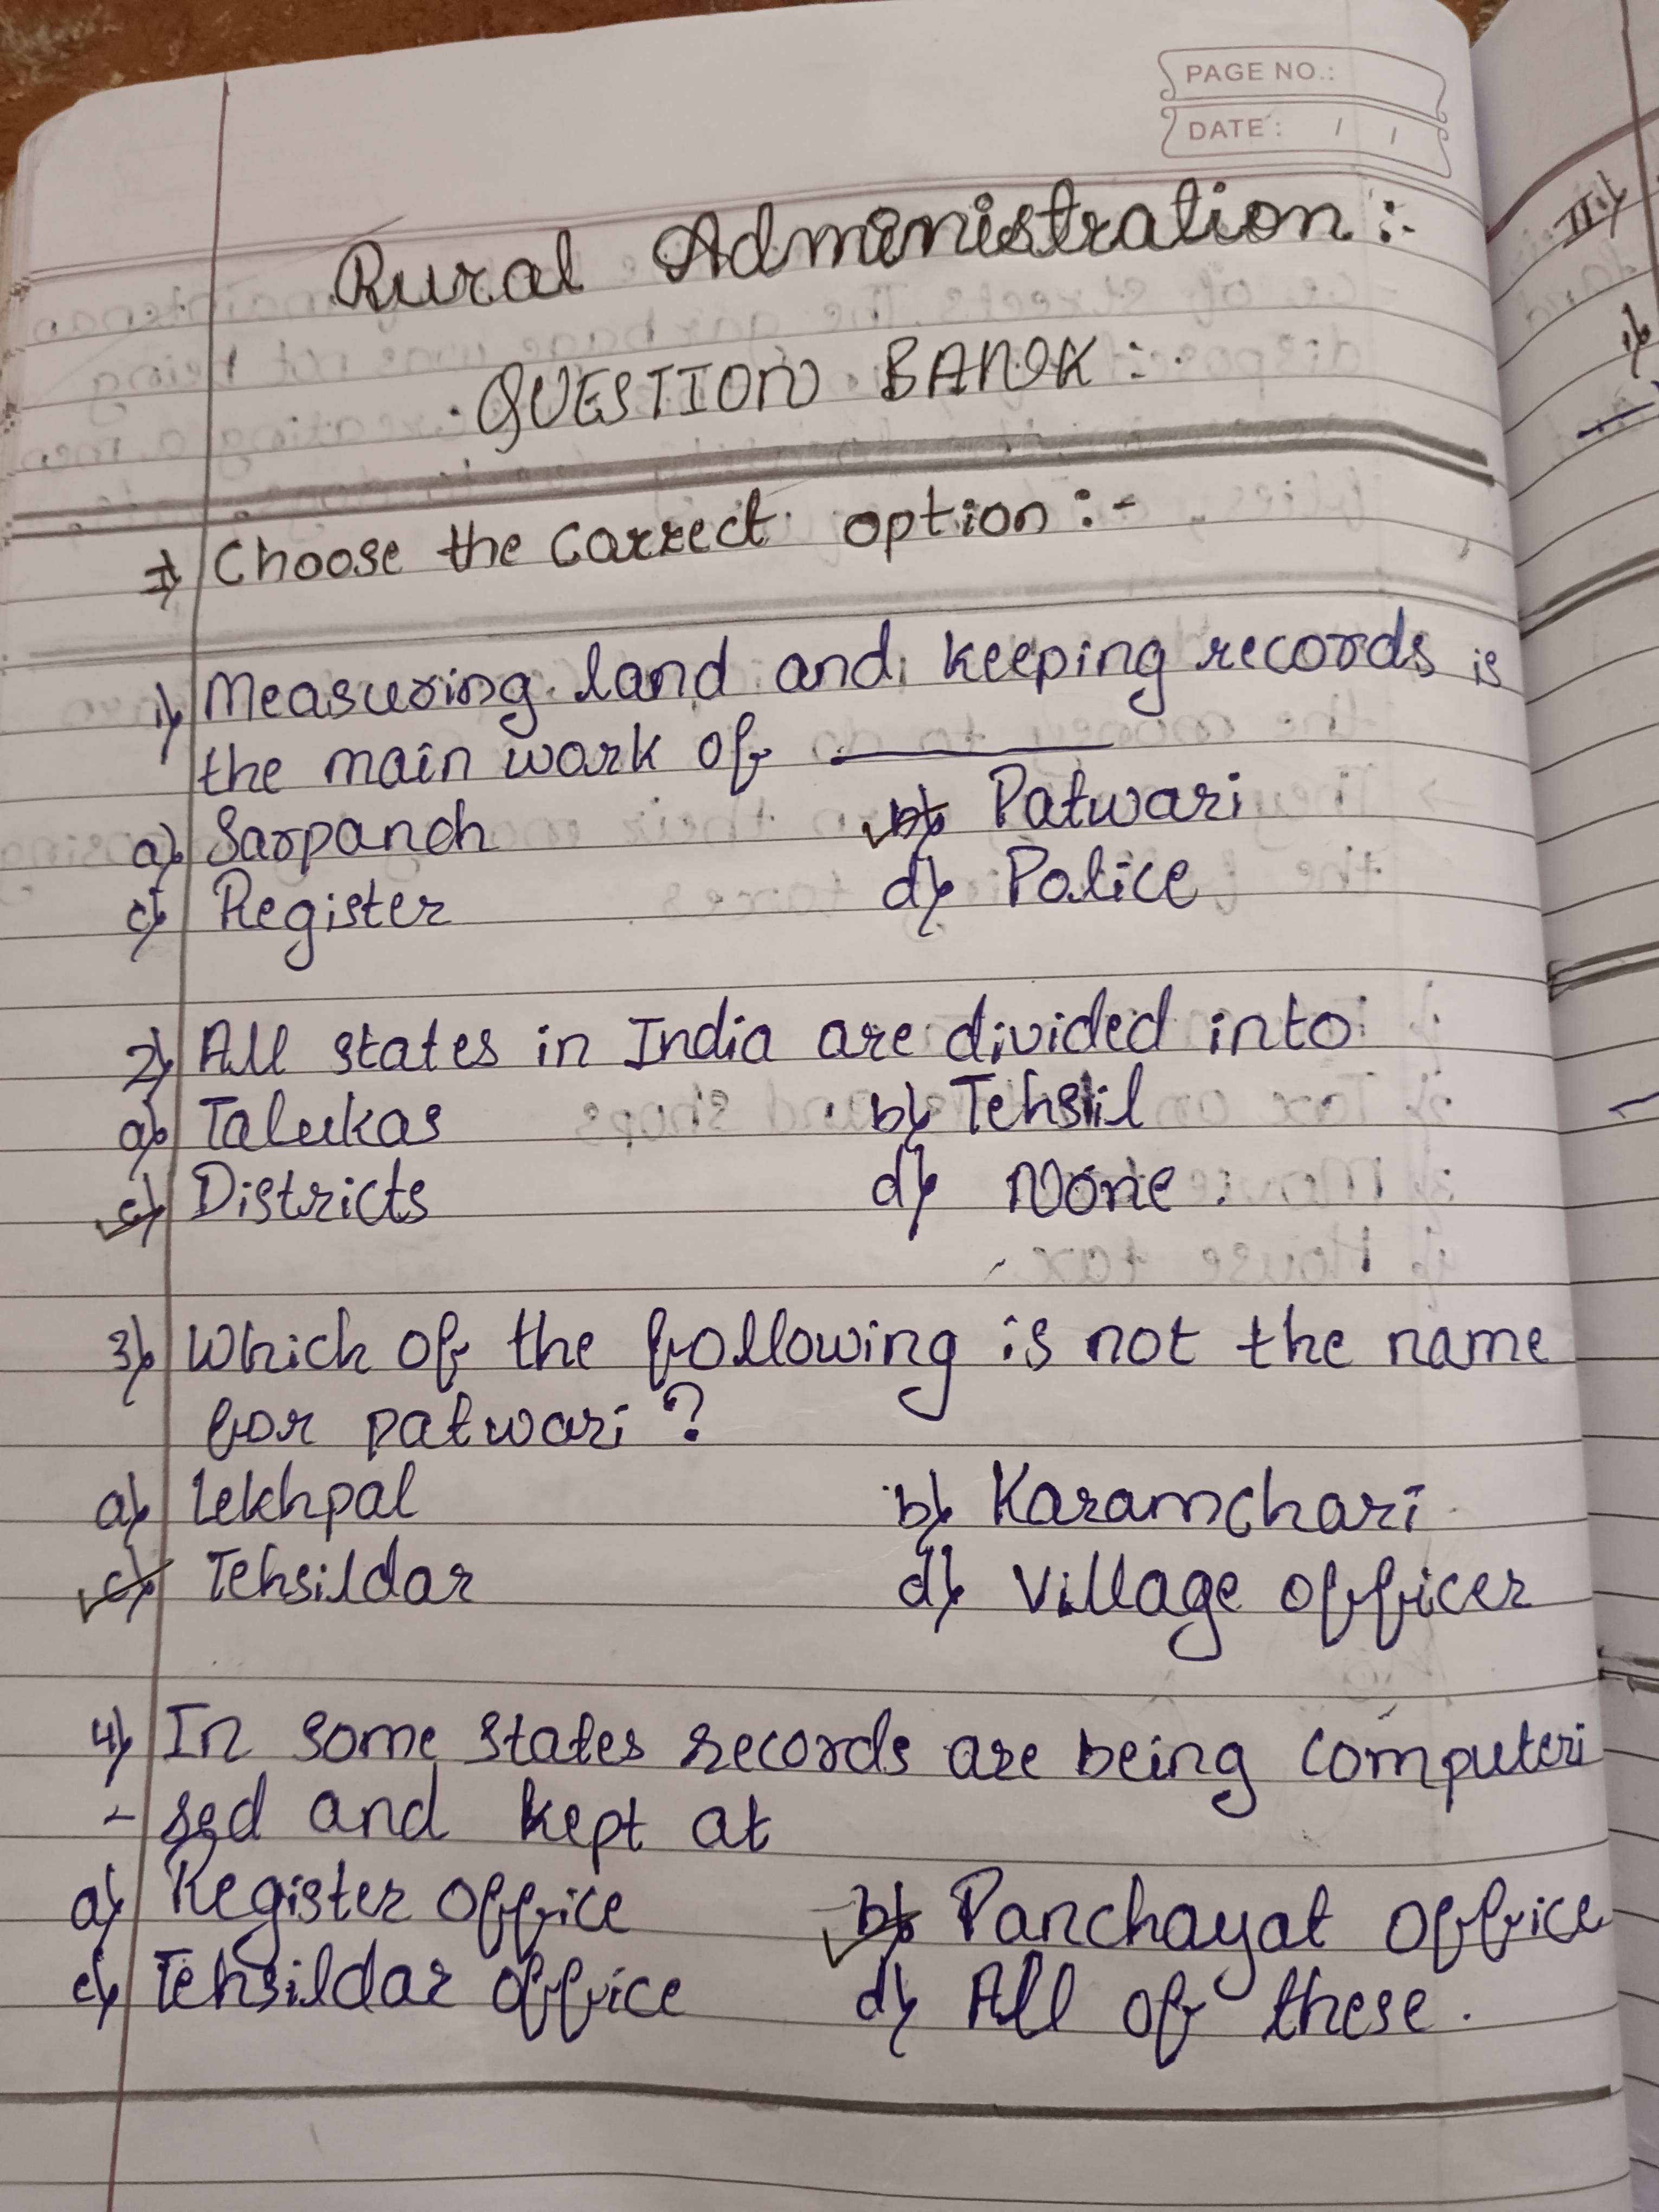 PAGE NO.:
DATE: / /
Rural Administration :-
QUESTION BANK :-
I) Choose the correct option :-
1) Measuring land and keeping records is
the main work of ______
a) Sarpanch b) Patwari
c) Register d) Police
2) All states in India are divided into
a) Talukas b) Tehsil
c) Districts d) None.
3) Which of the following is not the name
for patwari ?
a) Lekhpal b) Karamchari
c) Tehsildar d) Village officer
4) In some states records are being computeri
- sed and kept at
a) Register office b) Panchayat office
c) Tehsildar office d) All of these.
II)